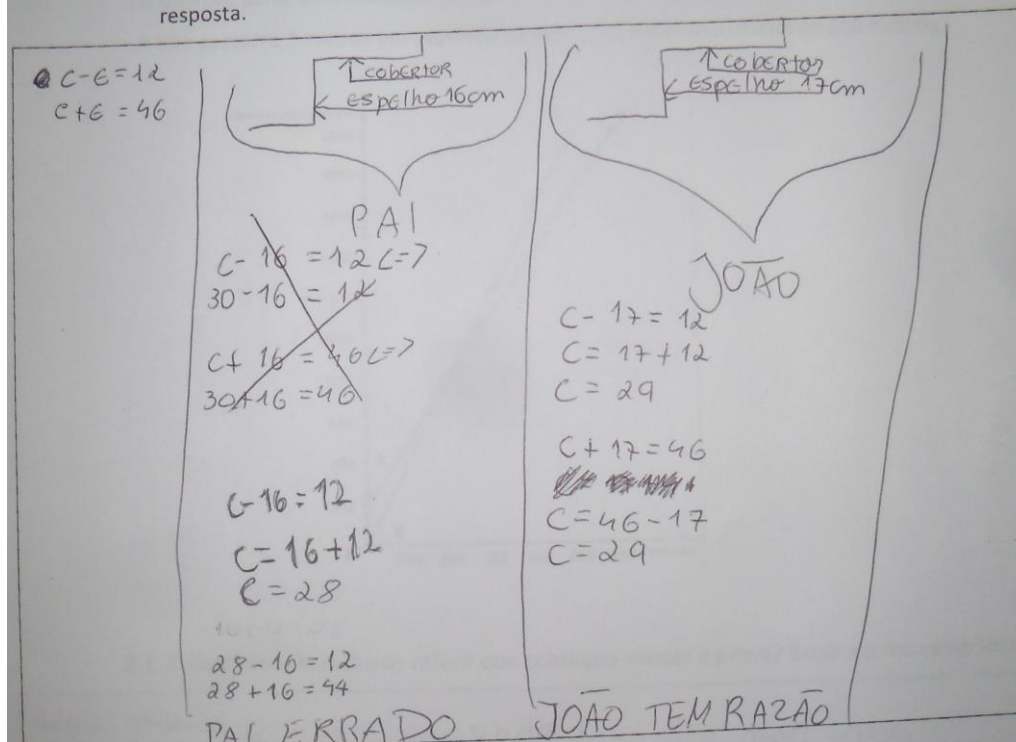 resposta.
C-E=12
C+E=46
COBERTOR
ESPElho 16cm
PAI
C-16 = 12 <=>
30-16 = 12
C+ 16 = 46 <=>
30+16 = 46
C-16=12
C=16+12
C=28
28-16=12
28+16=44
PAI ERRADO
COBERTOR
ESPElho 17cm
JOÃO
C-17=12
C=17+12
C=29
C+17=46
C=46-17
C=29
JOÃO TEM RAZÃO